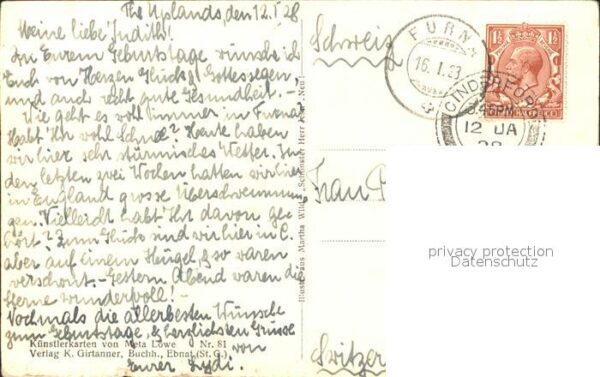 The Uplands, den 12.I.28
Meine liebe Judith!
Zu Eurem Geburtstage wünsche ich
Euch von Herzen Glück & Gottessegen,
und auch recht gute Gesundheit. -
Wie geht es wohl immer in Furna?
Habt Ihr wohl Schnee? Heute haben
wir hier sehr stürmisches Wetter. In
den letzten zwei Wochen hatten wir hier
in England grosse Überschwemmun-
gen. Vielleicht habt Ihr davon ge-
hört? Zum Glück sind wir hier in C.
aber auf einem Hügel, & so waren
verschont. - Gestern Abend waren die
Sterne wundervoll! -
Nochmals die allerbesten Wünsche
zum Geburtstage, & herzlichsten Grüsse
von
Eurer Lydi.
Künstlerkarten von Meta Löwe Nr. 81
Verlag K. Girtanner, Buchh., Ebnat (St. G.)
Illustr. aus Martha Wild: „Schönster Herr Jesu“ Neu!
Schweiz
Frau
Switzer
FURNA
16. I. 28
CINDERFORD
3.45PM
12 JA
28
1½ 1½
privacy protection
Datenschutz